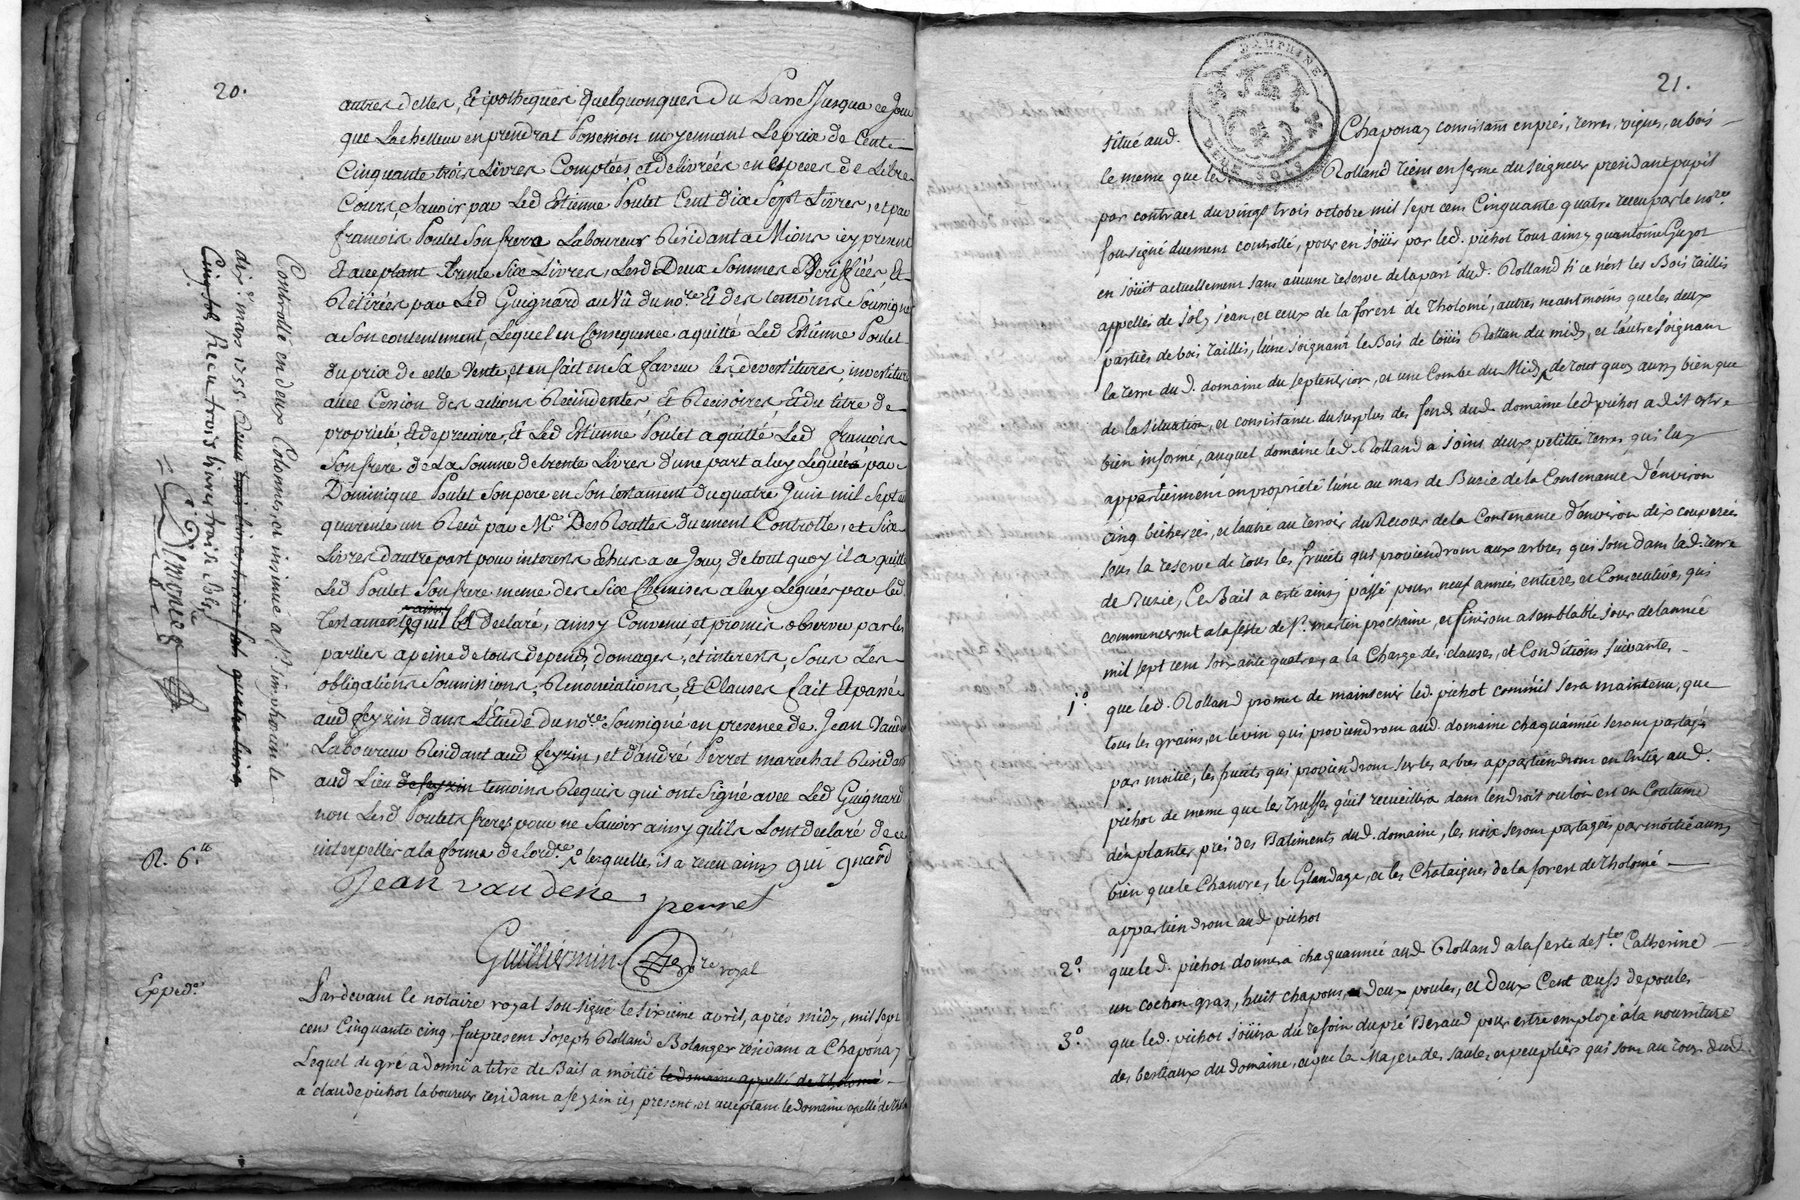 20.
autres delles, Et ipotheques quelquonques du Passé Jusqua ce Jour
que Lachetteur en prendrat Possession moyennant Le prix de Cent
Cinquante trois Livres Comptées, et delivrées en Especes de Libre
Cours, Savoir par Led Estienne Poulet Cent dix Sept Livres, et par
francois Poulet Son frere Laboureur Residant a Mions icy present
Et acceptant trente Six Livres, Lesd Deux Sommes Veriffiées Et
Retirées par Led Guignard au Vû du nore Et des temoins Sousignes
a Son contentement, Lequel en Consequence a quitté Led Estienne Poulet
du prix de cette Vente, et en fait en Sa faveur les devestitures, investitures
avec Cession des actions Rescindentes, Et Rescisoires, Et du titre de
proprieté, Et de precaire, Et Led Estienne Poulet a quitté Led francois
Son frere de La Somme de trente Livres d'une part a luy Leguées par
Dominique Poulet Son pere en Son testament du quatre Juin mil Sept cent
quarente un Reçû par Me. DesRouttes duement Controllé, et Six
Livres d'autre part pour interests Echus a ce Jour, de tout quoy il a quitté
Led Poulet Son frere meme des Six Chemises a luy Leguées par led
Testament, ainsy quil la declaré; ainsy Convenu et promis observer par les
parties a peine de tous depends, domages, et interests, Sous Les
obligations Soumissions, Renonciations, Et Clauses fait Et passé
aud feyzin dans L'Etude du nore Sousigné en presence de Jean Vaudene
Laboureur Residant aud feyzin, et d'andré Perret marechal Residant
aud Lieu de feyzin temoins Requis qui ont Signé avec Led Guignard
non Lesd Poulets freres pour ne Savoir ainsy quils Lont declaré de ce
interpellés a la forme de lord.ce
Jean vaudene, perret
Guilliermin nore royal
R. 6.tt
Controllé en deux Colonnes, et insinué a St. simphorien le
dix mars 1755
Reçu trois livres treise sols
Simonet
Exped.e
Pardevant le notaire royal sousigné le sixieme avril, après midy, mil sept
cens Cinquante cinq fut present Joseph Rolland Bolanger residant a Chaponay
Lequel de gré a donné a titre de Bail a moitié le domaine appellé de Tholomé
a claude pichot laboureur residant a feyzin icy present, et acceptant le domaine apellé de Tholomé
21.
DAUPHINE
DEUX SOLS
situé aud. Chaponay consistant en prés, terres, vignes, et bois
le meme que led Rolland tient en ferme du seigneur president pupil
par contract du vingt trois octobre mil sept cens Cinquante quatre receu par le nore.
sousigné duement controllé, pour en jouir par led. pichot tout ainsy quantoine Guyot
en jouit actuellement sans aucune reserve de la part dud. Rolland si ce nest les Bois taillis
appellés de Joly jean, et ceux de la forest de Tholomé, autres neantmoins que les deux
parties de bois taillis, lune joignant le Bois de Louis Rollan du midy, et l'autre joignant
la terre du d. domaine du septentrion, et une Combe du Midy, de tout quoy aussy bien que
de la situation, et consistance du surplus des fonds dud. domaine led pichot a dit estre
bien informé, auquel domaine led. Rolland a joint deux petittes terres, qui luy
appartiennent en proprieté lune au mas de Buzie de la Contenance d'environ
cinq bicherées, et l'autre au terroir du Recour de la Contenance d'environ dix couperées
sous la reserve de tous les fruits qui proviendront aux arbres qui sont dans lad. terre
de Buzie, Ce Bail a esté ainsy passé pour neuf années entieres et Consecutives qui
commenceront a la feste de St. martin prochaine, et finiront a semblable jour de lannée
mil sept cent soixante quatre, a la Charge des clauses, et Conditions suivantes.
1.° que led. Rolland promet de maintenir led. pichot comm'il sera maintenu, que
tous les grains, et le vin qui proviendront aud. domaine chaquannée seront partagés
par moitié, les fruits qui proviendront sur les arbres appartiendront en entier aud.
pichot de meme que les truffes quil recueillira dans lendroit ou lon est en Coutume
den planter près des Batiments dud. domaine, les noix seront partagées par moitié aussy
bien que le Chanvre, le Glandage, et les Chataignes de la forest de Tholomé
appartiendront aud pichot
2.° que le d. pichot donnera chaquannée aud Rolland a la feste de Ste. Catherine
un cochon gras, huit chapons, deux poules, et deux Cent œufs de poules
3.° que led. pichot jouira du refoin du pré Beraud pour estre employé a la nourriture
des bestiaux du domaine, et que la Majere des saules et peupliers qui sont au tour dud